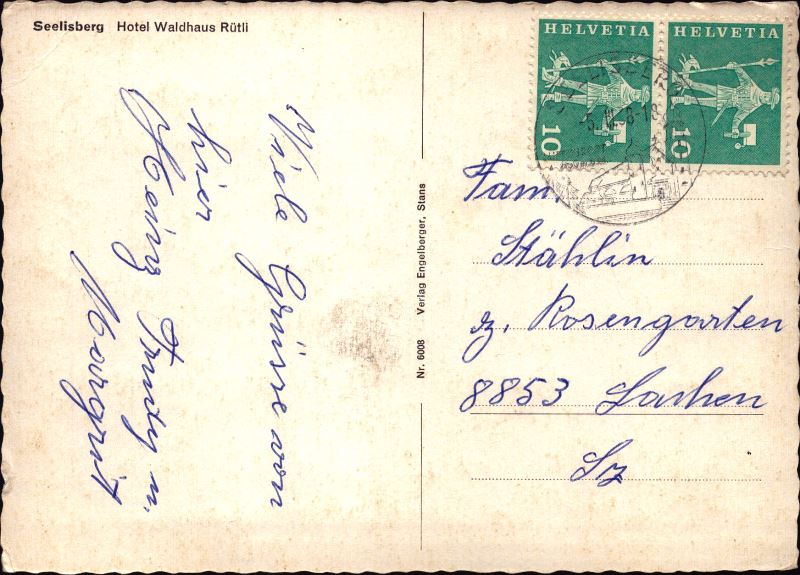 Seelisberg Hotel Waldhaus Rütli
Viele Grüsse von
hier
Heinz Trudy u.
Margrit
Nr. 6008 Verlag Engelberger, Stans
HELVETIA
10
HELVETIA
10
Fam.
Stählin
z. Rosengarten
8853 Lachen
Sz